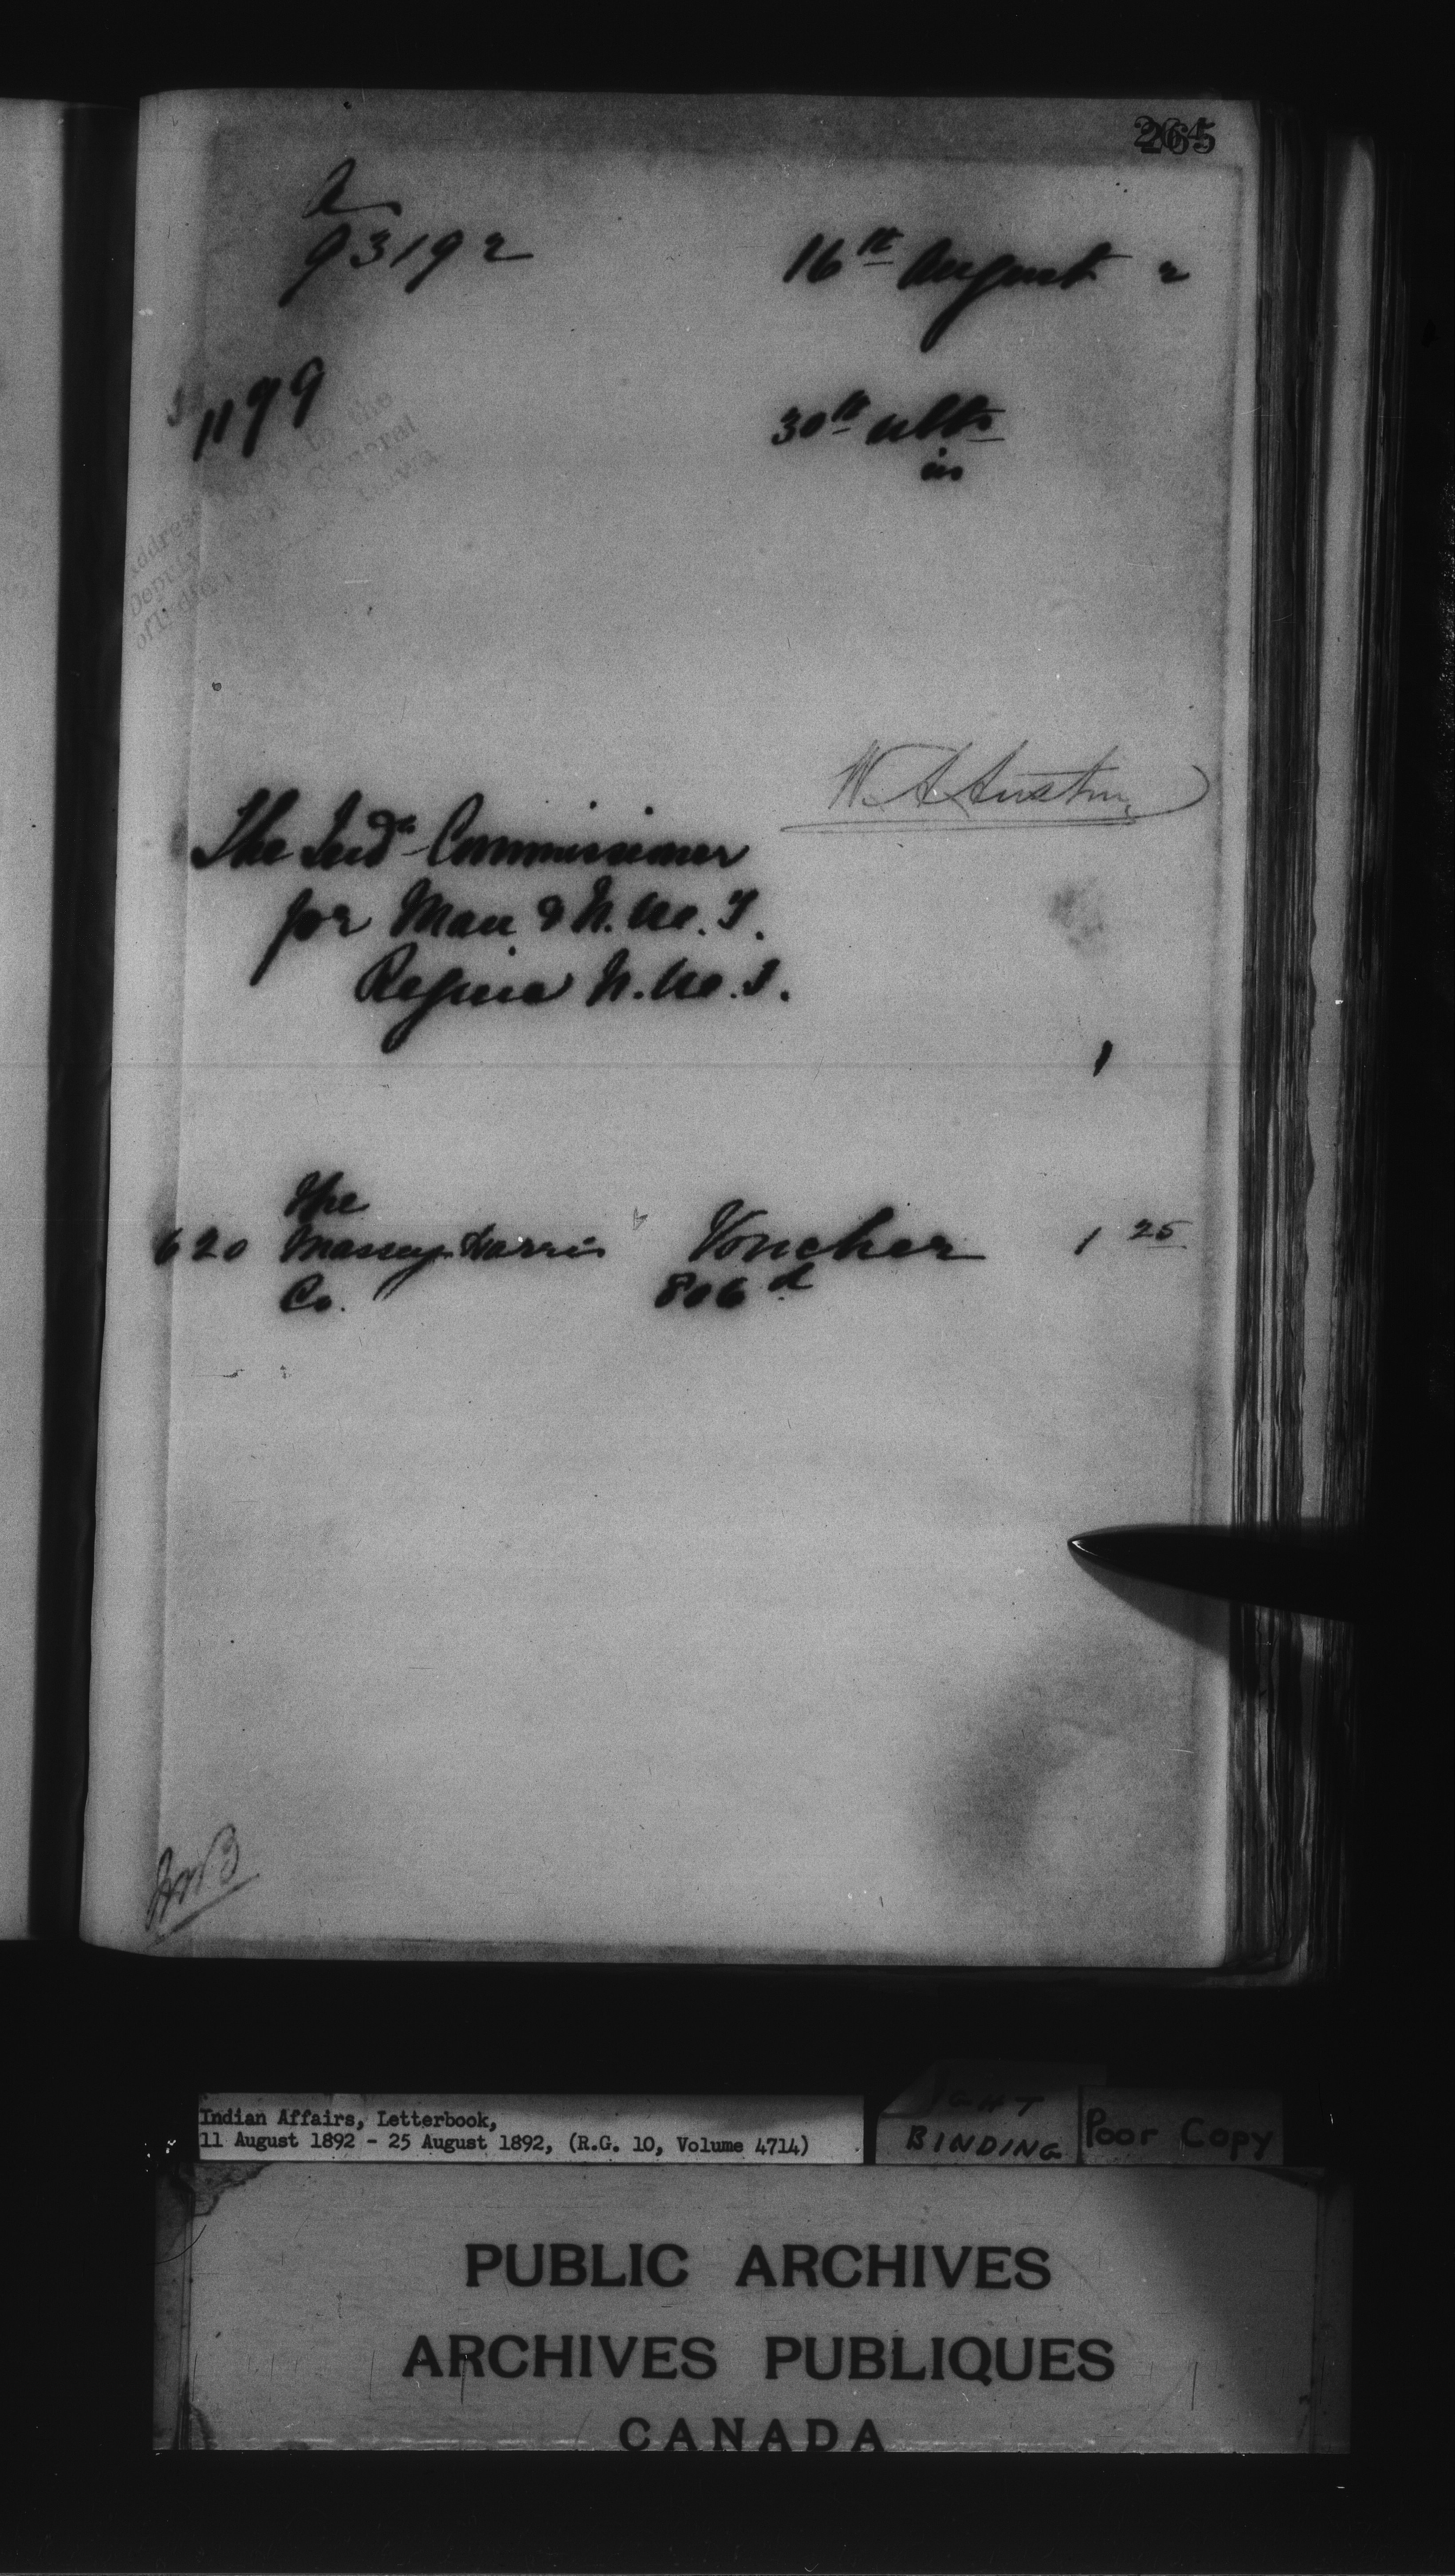 265
A
93192
16th August 2
1199
30th ulto
in
Address
to the
Deputy
General
of Indian
W. A. Austin
The Indn Commissioner
for Man & N.W.T.
Regina N.W.T.
1
The
620 Massey-Harris Voucher 1 25
Co. 806 d
Indian Affairs, Letterbook,
11 August 1892 - 25 August 1892, (R.G. 10, Volume 4714)
BINDING
Poor Copy
PUBLIC ARCHIVES
ARCHIVES PUBLIQUES
CANADA